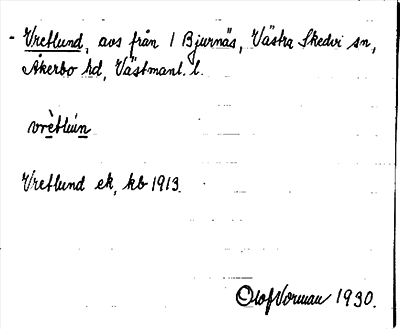 - Vretlund, avs från 1 Bjurnäs, Västra Skedvi sn,
Åkerbo hd, Västmanl. l.
vrètlún
Vretlund ek, kb 1913.
Olof Vorman 1930.